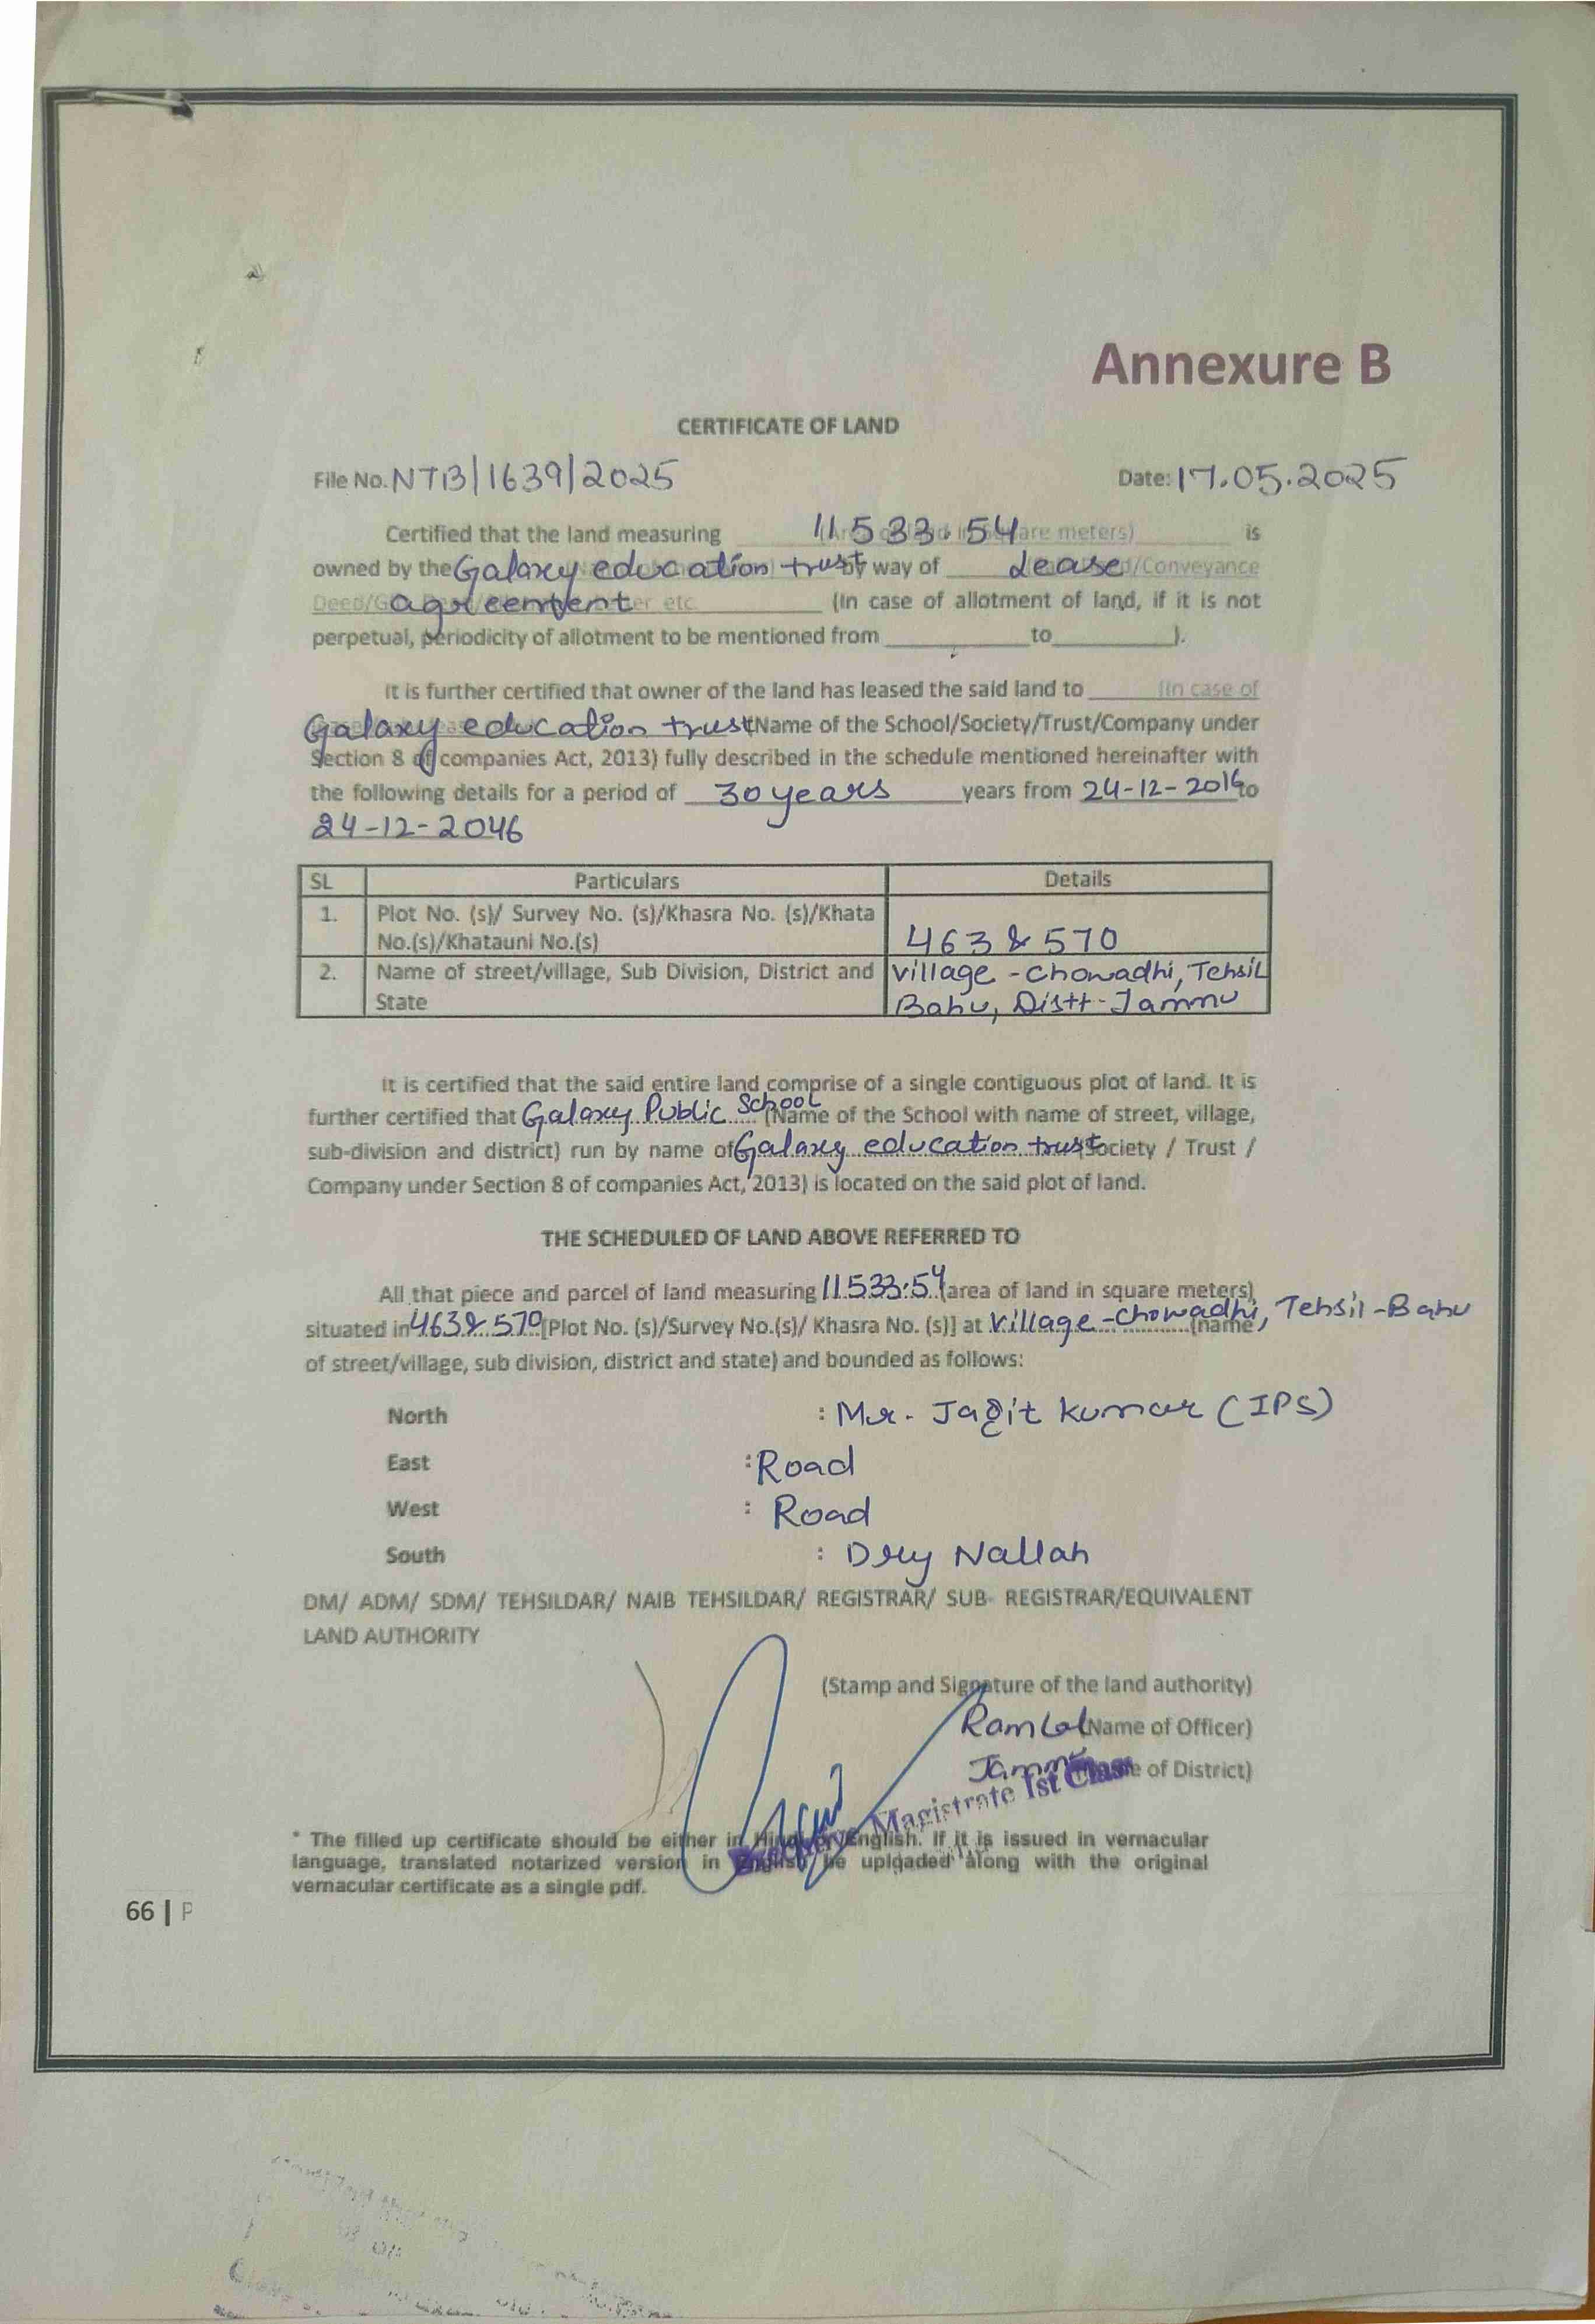 Annexure B
CERTIFICATE OF LAND
File No. NTB/1639/2025 Date: 17.05.2025
Certified that the land measuring 11533.54 is
owned by the Galaxy education trust by way of Lease /Conveyance
Deed/ agreement er etc. (In case of allotment of land, if it is not
perpetual, periodicity of allotment to be mentioned from ______ to ______).
It is further certified that owner of the land has leased the said land to ______ (In case of
Galaxy education trust (Name of the School/Society/Trust/Company under
Section 8 of companies Act, 2013) fully described in the schedule mentioned hereinafter with
the following details for a period of 30 years years from 24-12-2016 to
24-12-2046
SL Particulars Details
1. Plot No. (s)/ Survey No. (s)/Khasra No. (s)/Khata
No.(s)/Khatauni No.(s) 463 & 570
2. Name of street/village, Sub Division, District and village - Chowadhi, Tehsil
State Bahu, Distt - Jammu
It is certified that the said entire land comprise of a single contiguous plot of land. It is
further certified that Galaxy Public School (Name of the School with name of street, village,
sub-division and district) run by name of Galaxy education trust Society / Trust /
Company under Section 8 of companies Act, 2013) is located on the said plot of land.
THE SCHEDULED OF LAND ABOVE REFERRED TO
All that piece and parcel of land measuring 11533.54 (area of land in square meters)
situated in 463 & 570 [Plot No. (s)/Survey No.(s)/ Khasra No. (s)] at Village - Chowadhi, Tehsil - Bahu (name
of street/village, sub division, district and state) and bounded as follows:
North : Mr. Jagjit Kumar (IPS)
East : Road
West : Road
South : Dry Nallah
DM/ ADM/ SDM/ TEHSILDAR/ NAIB TEHSILDAR/ REGISTRAR/ SUB- REGISTRAR/EQUIVALENT
LAND AUTHORITY
(Stamp and Signature of the land authority)
Ram Lal (Name of Officer)
Jammu of District)
Executive Magistrate Ist Class
* The filled up certificate should be either in Hindi or English. If it is issued in vernacular
language, translated notarized version in English be uploaded along with the original
vernacular certificate as a single pdf.
66 | P